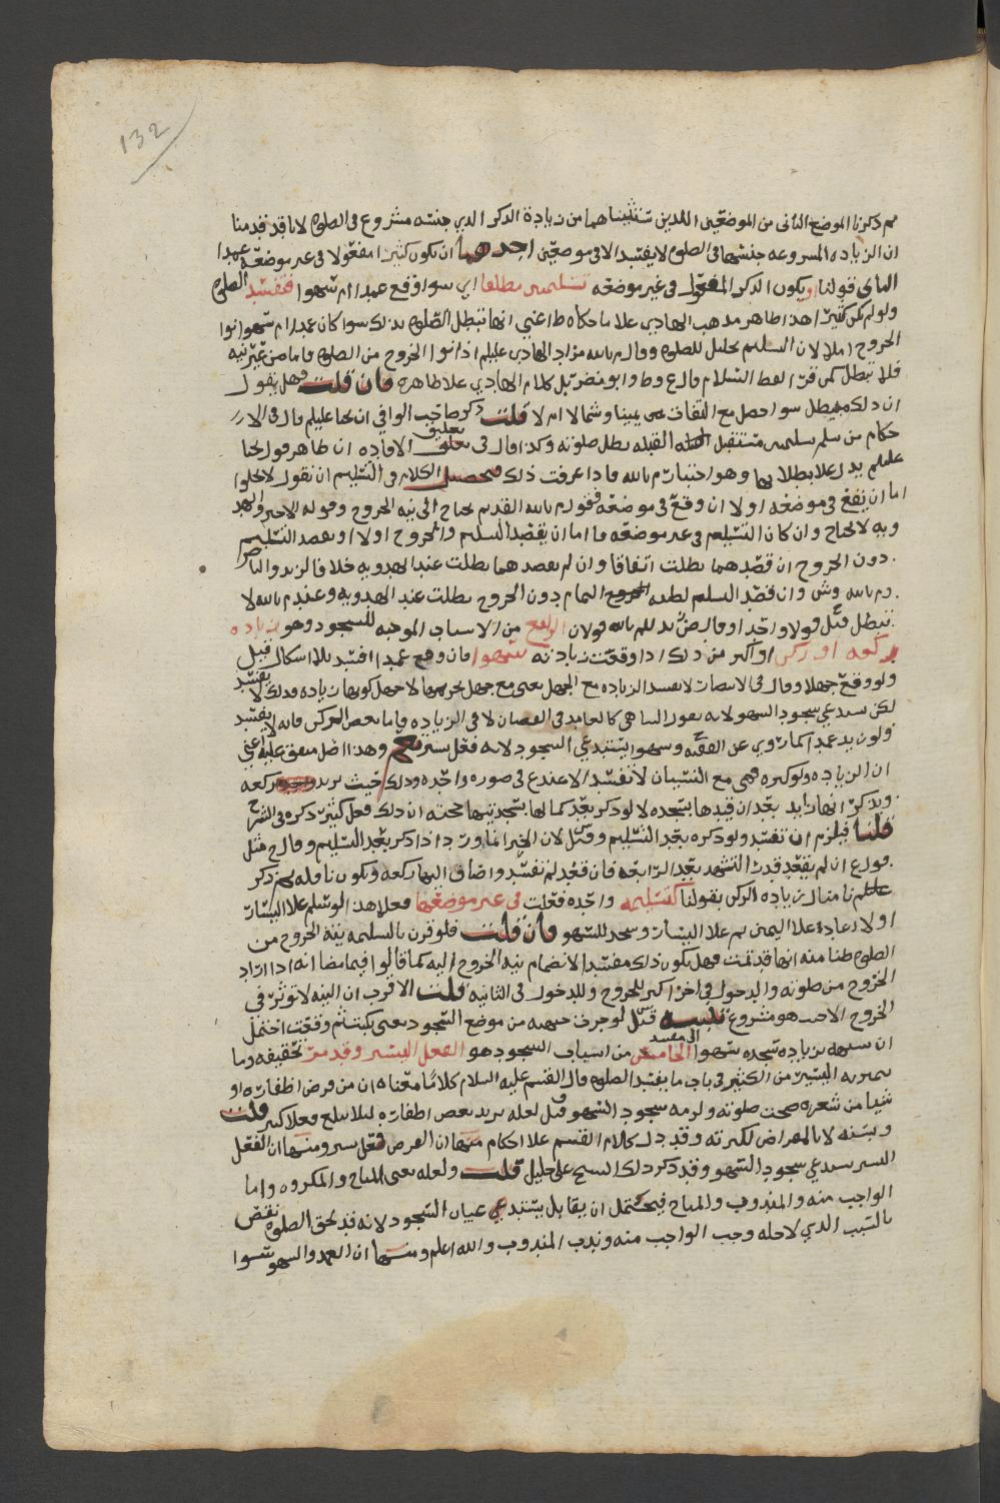 132
ثم ذكرنا الموضع الثانى من الموضعين اللذين تستثيناهما من زيادة الذكر الذي جنسه مشروع فى الصلوه لانا قد قدمنا
ان الزياده المشروعه جنسها فى الصلوه لا يفسد الا فى موضعين احدهما ان يكون كثيرا مفعولا فى غير موضعه عمدا
الثانى قولنا او يكون الذكر المفعول فى غير موضعه تسليمتين مطلقا اي سوا وقع عمدا ام سهوا فتفسد الصلوه
ولو لم يكن كثيرا هذا ظاهر مذهب الهادي علا ما حكاه ط اعني انها تبطل الصلوه بذلك سوا كان عمدا ام سهوا نوا
الخروج ام لا لان التسليم تحليل للصلوه وقال م بالله مراد الهادي عليلم اذا نوا الخروج من الصلوه فاما من غير نيه
فلا تبطل كمن قرا لفظ السلام قال ع وط وابو مضر بل كلام الهادي علا ظاهره فان قلت فهل يقول
ان ذلك مبطل سوا حصل مع التفات يمينا وشمالا ام لا قلت ذكر صاحب الوافي ان يحيا عليلم قال فى الا
حكام من سلم تسليمتين مستقبل القبله بطل صلوته وكذا قال فى تعليق الافاده ان ظاهر قول يحيا
عليلم يدل علا بطلانها وهو اختيار م بالله فاذا عرفت ذلك فتحصيل الكلام فى التسليم ان نقول لا يخلوا
اما ان يقع فى موضعه او لا ان وقع فى موضعه فقول م بالله القديم يحتاج الى نيه الخروج وقوله الاخير والهد
ويه لا يحتاج وان كان التسليم فى غير موضعه فاما ان يقصد التسليم والخروج اولا او يقصد التسليم
دون الخروج ان قصدهما بطلت اتفاقا وان لم يقصدهما بطلت عند الهدويه خلافا لزيد والناصر
وم بالله وش وان قصد التسليم لطلب التمام دون الخروج بطلت عند الهدويه وعند م بالله لا
تبطل قيل قولا واحدا وقال ض زيد لم بالله قولان الرابع من الاسباب الموجبه للسجود وهو زياده
ركعه او ركن او اكثر من ذلك اذا وقعت زيادته سهوا فان وقع عمدا افسد بلا اشكال قيل
ولو وقع جهلا وقال فى الانتصار لا تفسد الزياده مع الجهل يعني مع جهل تحريمها لا جهل كونها زياده فذلك لا يفسد
لكن يستدعي سجود السهو لانه يعود الساهي كالعامد فى النقصان لا فى الزياده واما بعض الركن فانه لا يفسد
ولو زيد عمدا كما روي عن الفقيه وسهوا يستدعي السجود لانه فعل يسير نعم وهذا اصل متفق عليه اعني
ان الزياده ولو كبره فهي مع النسيان لا تفسد الا عند ع فى صوره واحده وذلك حيث يزيد ركعه
ويذكر انها زايد بعد ان قيدها بسجده لا لو ذكر بعد كمالها بسجدتيها حجته ان ذلك فعل كثير ذكره فى الشرح
قلنا فيلزم ان تفسد ولو ذكره بعد التسليم وقيل لان الخبر انما ورد اذا ذكر بعد التسليم وقال ح مثل
قول ع ان لم يقعد قدر التشهد بعد الرابعه فان قعد لم تفسد واضاف اليها ركعه وتكون نافله ثم ذكر
نا مثال زياده الركن بقولنا كتسليمه واحده فعلت فى غير موضعها فعلا هذا لو سلم علا اليسار
اولا اعاده علا اليمين ثم علا اليسار وسجد للسهو فان قلت فلو قرن بالتسليمه نية الخروج من
الصلوه ظنا منه انها قد تمت فهل يكون ذلك مفسدا لانضمام نيه الخروج اليه كما قالوا فيما مضا انه اذا اراد
الخروج من صلوته والدخول فى اخرا كبر للخروج وللدخول فى الثانيه قلت الاقرب ان النيه لا تؤثر فى
الخروج الاخير هو مشروع تنبيه قيل لو جرت جبهته من موضع السجود يعني بكبتثم وقعت احتمل
ان يشبهه بزياده سجده سهوا الخامس من اسباب السجود هو الفعل اليسير وقد مر تحقيقه وما
يميز به اليسير من الكثير فى باب ما يفسد الصلوه قال القسم عليه السلام كلاما معناه ان من قرض اظفاره او
شيا من شعره صحت صلوته ولزمه سجود السهو وقيل لعله يريد بعض اظفاره ليلا يبلغ فعلا كثير قلت
ويسنه لا بالمقراض لكثرته وقد دل كلام القسم علا احكام منها ان القرض فعل يسير ومنها ان الفعل
اليسير يستدعي سجود السهو وقد ذكر ذلك الشيخ علي خليل قلت ولعله يعني المباح والمكروه واما
الواجب منه والمندوب والمباح فيحتمل ان يقابل يستدعي عيان السجود لانه قد لحق الصلوه نقص
بالسبب الذي لاجله وجب الواجب منه وندب المندوب والله اعلم ومنها ان العمد والسهو سوا